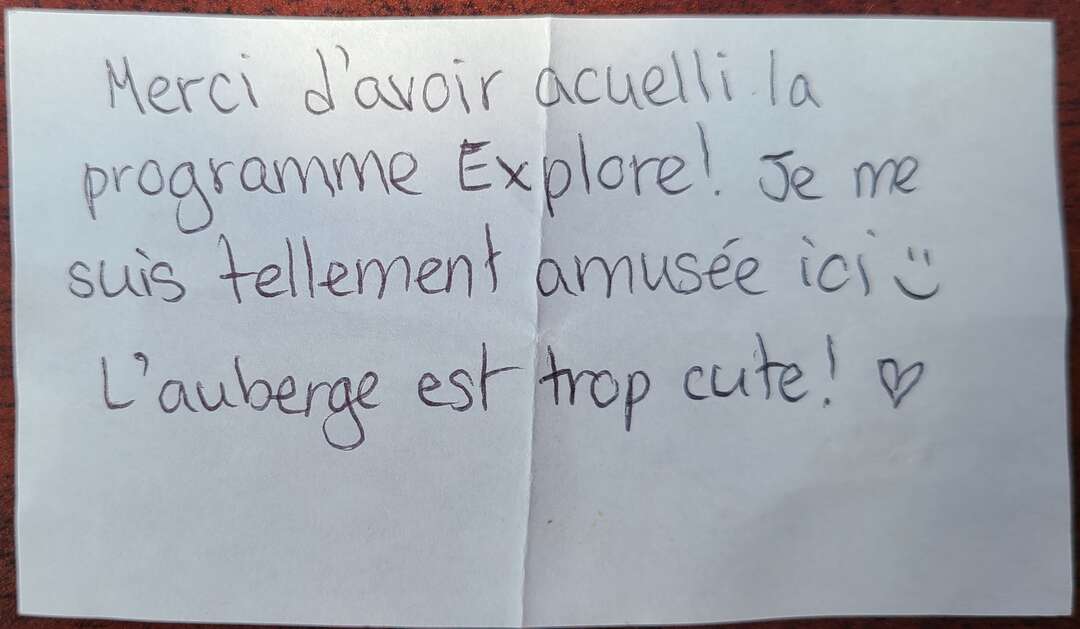 Merci d'avoir acuelli la
programme Explore! Je me
suis tellement amusée ici :)
L'auberge est trop cute! ♡